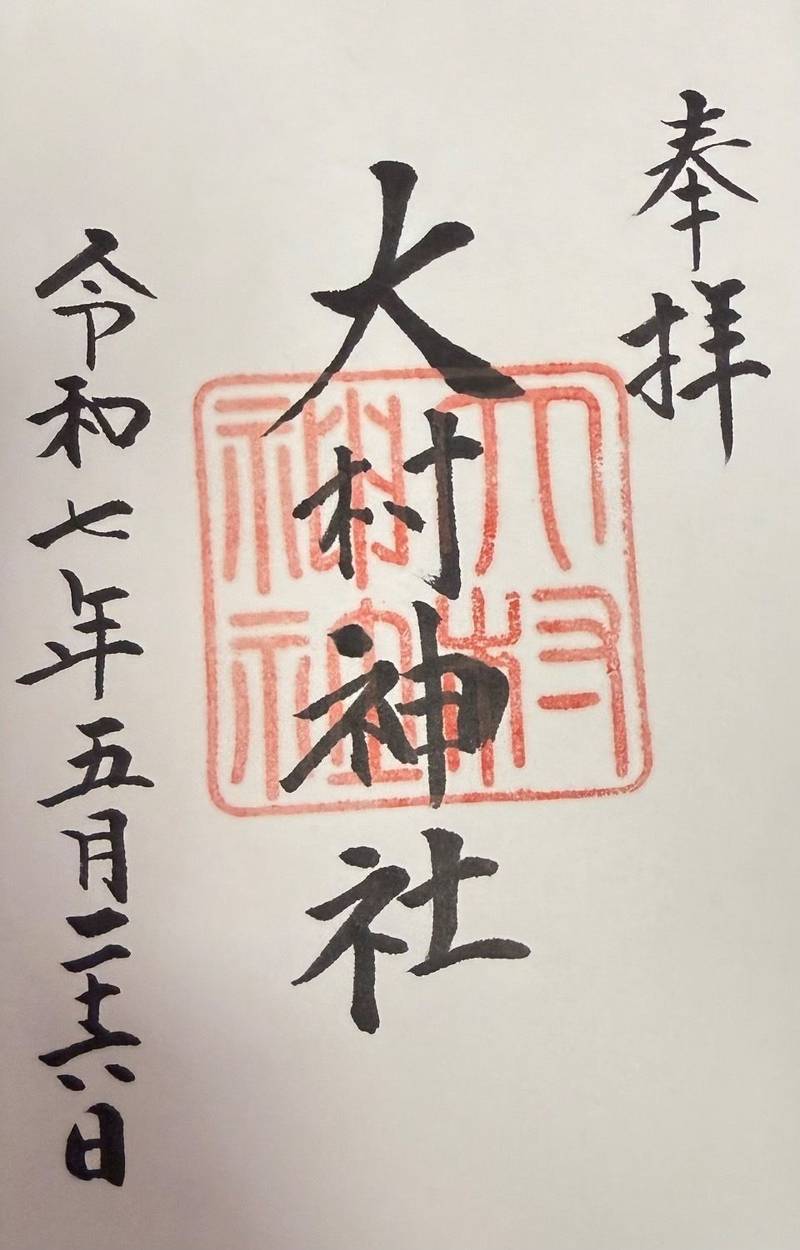 奉拝
大村神社
大村神社
令和七年五月二十六日